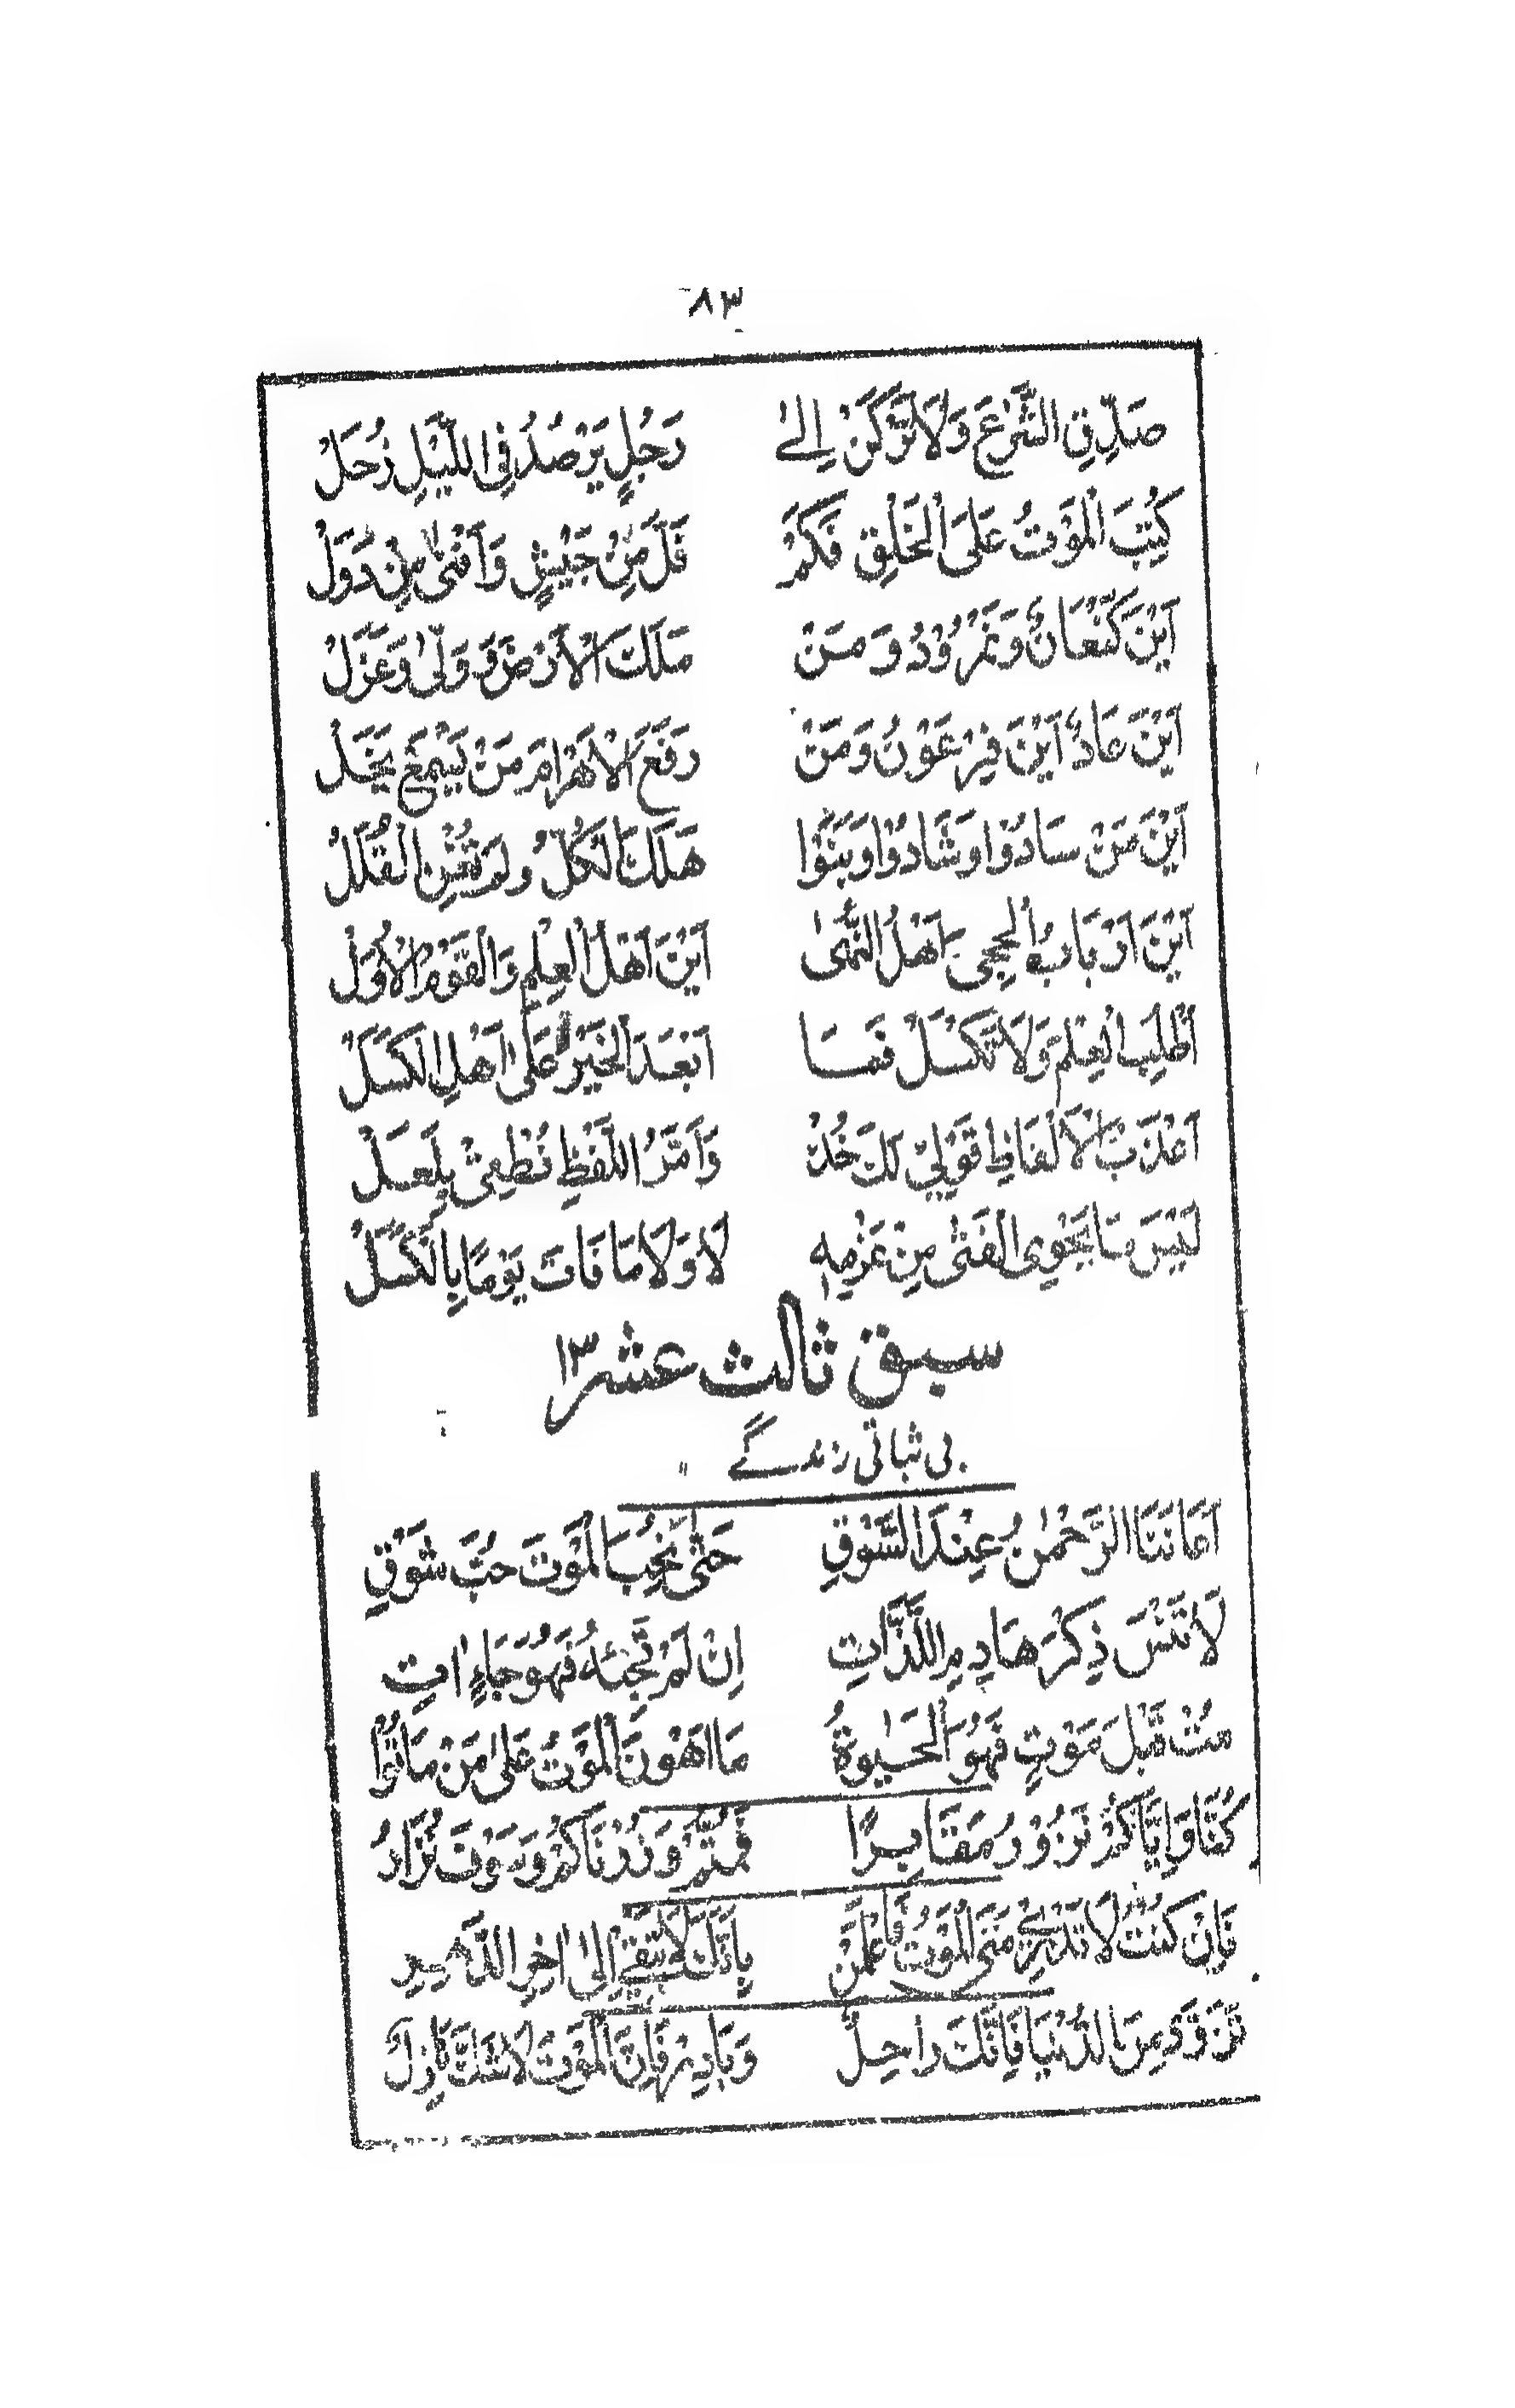 ٨٣
صَدِّقِ الشَّرْعَ وَلَا تَرْكَنْ اِلىٰ رَجُلٍ يَرْصُدُ فِى اللَّيْلِ زُحَلْ
كُتِبَ الْمَوْتُ عَلَى الْخَلْقِ فَكَمْ فَلَّ مِنْ جَيْشٍ وَاَفْنىٰ مِنْ دُوَلْ
اَيْنَ كَنْعَانُ وَنَمْرُوْدُ وَمَنْ مَلَكَ الْاَرْضَ وَوَلّٰى وَعَزَلْ
اَيْنَ عَادٌ اَيْنَ فِرْعَوْنُ وَمَنْ رَفَعَ الْاَهْرَامَ مَنْ يَسْمَعْ يَخَلْ
اَيْنَ مَنْ سَادُوْا وَشَادُوْا وَبَنَوْا هَلَكَ الْكُلُّ وَلَمْ تُغْنِ الْقُلَلْ
اَيْنَ اَرْبَابُ الْحِجٰى اَهْلُ النُّهٰى اَيْنَ اَهْلُ الْعِلْمِ وَالْقَوْمُ الْاُوَلْ
اُطْلُبِ الْعِلْمَ وَلَا تَكْسَلْ فَمَا اَبْعَدَ الْخَيْرَ عَلىٰ اَهْلِ الْكَسَلْ
اَعْذَبُ الْاَلْفَاظِ قَوْلِيْ لَكَ خُذْ وَاَمَرُّ اللَّفْظِ نُطْقِىْ بِلَعَلْ
لَيْسَ مَا يَحْوِى الْفَتٰى مِنْ عَزْمِهٖ لَا وَلَا مَا فَاتَ يَوْمًا بِالْكَسَلْ
سبق ثالث عشر ١٣
بى ثباتى زندگے
اَعَانَنَا الرَّحْمٰنُ عِنْدَ السَّوْقِ حَتّٰى نُحِبَّ الْمَوْتَ حُبَّ شَوْقِ
لَا تَنْسَ ذِكْرَ هَادِمِ اللَّذَّاتِ اِنْ لَمْ تَجِئْهُ فَهُوَ جَاءٍ اٰتِ
مُتْ قَبْلَ مَوْتٍ فَهُوَ الْحَيٰوةُ مَا اَهْوَنَ الْمَوْتُ عَلىٰ مَنْ مَاتُوْا
كُنَّا وَاِيَّاكُمْ نَزُوْرُ مَقَابِرًا فَمُتُّمْ وَزُرْنَاكُمْ وَسَوْفَ نُزَارُ
فَاِنْ كُنْتَ لَا تَدْرِىْ مَتَى الْمَوْتُ فَاعْلَمَنْ بِاَنَّكَ لَا تَبْقٰى اِلىٰ اٰخِرِ الدَّهْرِ
تَزَوَّدْ مِنَ الدُّنْيَا فَاِنَّكَ رَاحِلٌ وَبَادِرْ فَاِنَّ الْمَوْتَ لَا شَكَّ نَازِلُ